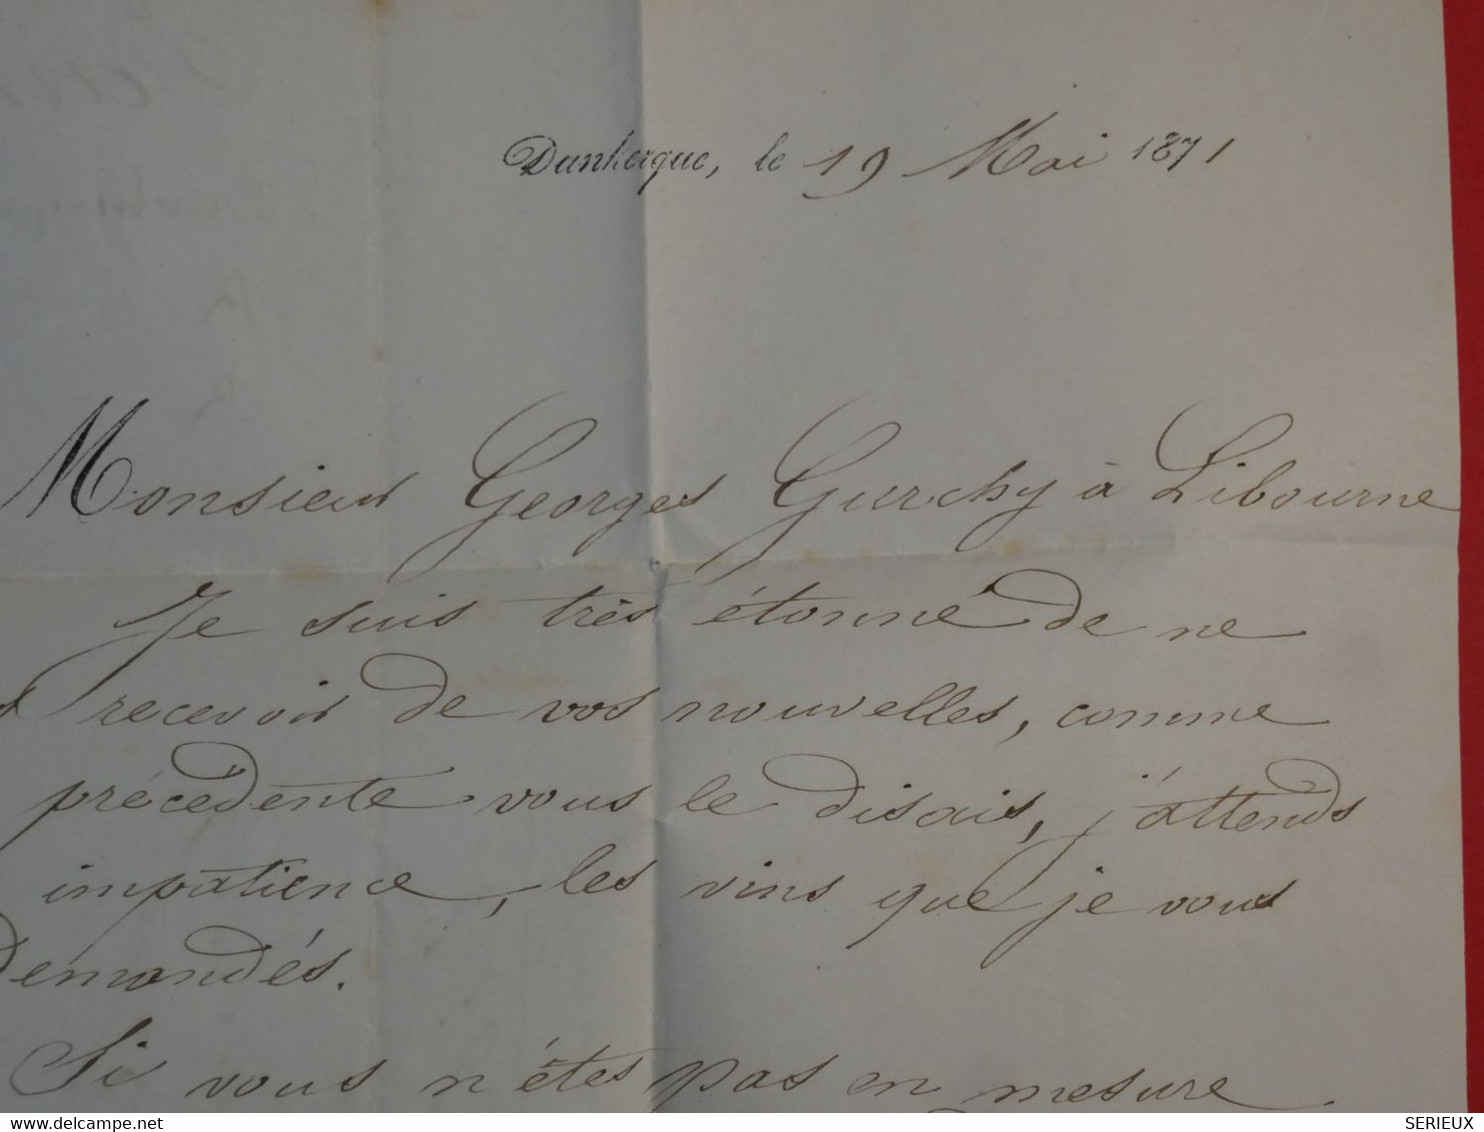 Dunkerque, le 19 Mai 1871
Monsieur Georges Gurchy à Libourne
Je suis très étonné de ne
recevoir de vos nouvelles, comme
précédente vous le disais, j'attends
impatience, les vins que je vous
Demandés.
Si vous n'êtes pas en mesure
SERIEUX